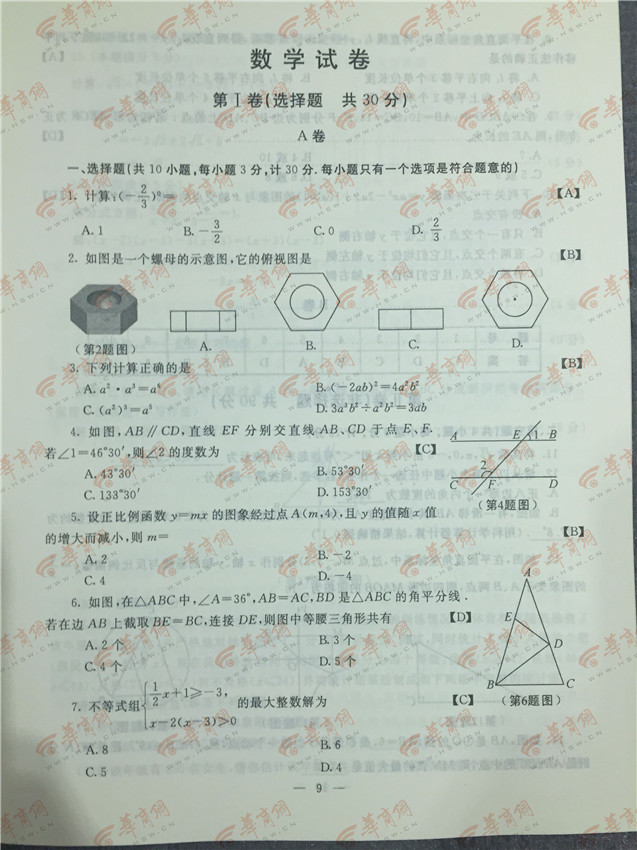 数学试卷
第Ⅰ卷(选择题 共30分)
A卷
一、选择题(共10小题,每小题3分,计30分.每小题只有一个选项是符合题意的)
1. 计算:(-2/3)⁰= 【A】
A. 1 B. -3/2 C. 0 D. 2/3
2. 如图是一个螺母的示意图,它的俯视图是 【B】
(第2题图) A. B. C. D.
3. 下列计算正确的是 【B】
A. a²·a³=a⁶ B. (-2ab)²=4a²b²
C. (a²)³=a⁵ D. 3a³b²÷a²b²=3ab
4. 如图,AB∥CD,直线EF分别交直线AB、CD于点E、F.
若∠1=46°30′,则∠2的度数为 【C】
A. 43°30′ B. 53°30′
C. 133°30′ D. 153°30′
A E 1 B
2
C F D
(第4题图)
5. 设正比例函数y=mx的图象经过点A(m,4),且y的值随x值
的增大而减小,则m= 【B】
A. 2 B. -2
C. 4 D. -4
6. 如图,在△ABC中,∠A=36°,AB=AC,BD是△ABC的角平分线.
若在边AB上截取BE=BC,连接DE,则图中等腰三角形共有 【D】
A. 2个 B. 3个
C. 4个 D. 5个
A
E
D
B C
(第6题图)
7. 不等式组{1/2x+1≥-3, x-2(x-3)>0 的最大整数解为 【C】
A. 8 B. 6
C. 5 D. 4
— 9 —
华育网